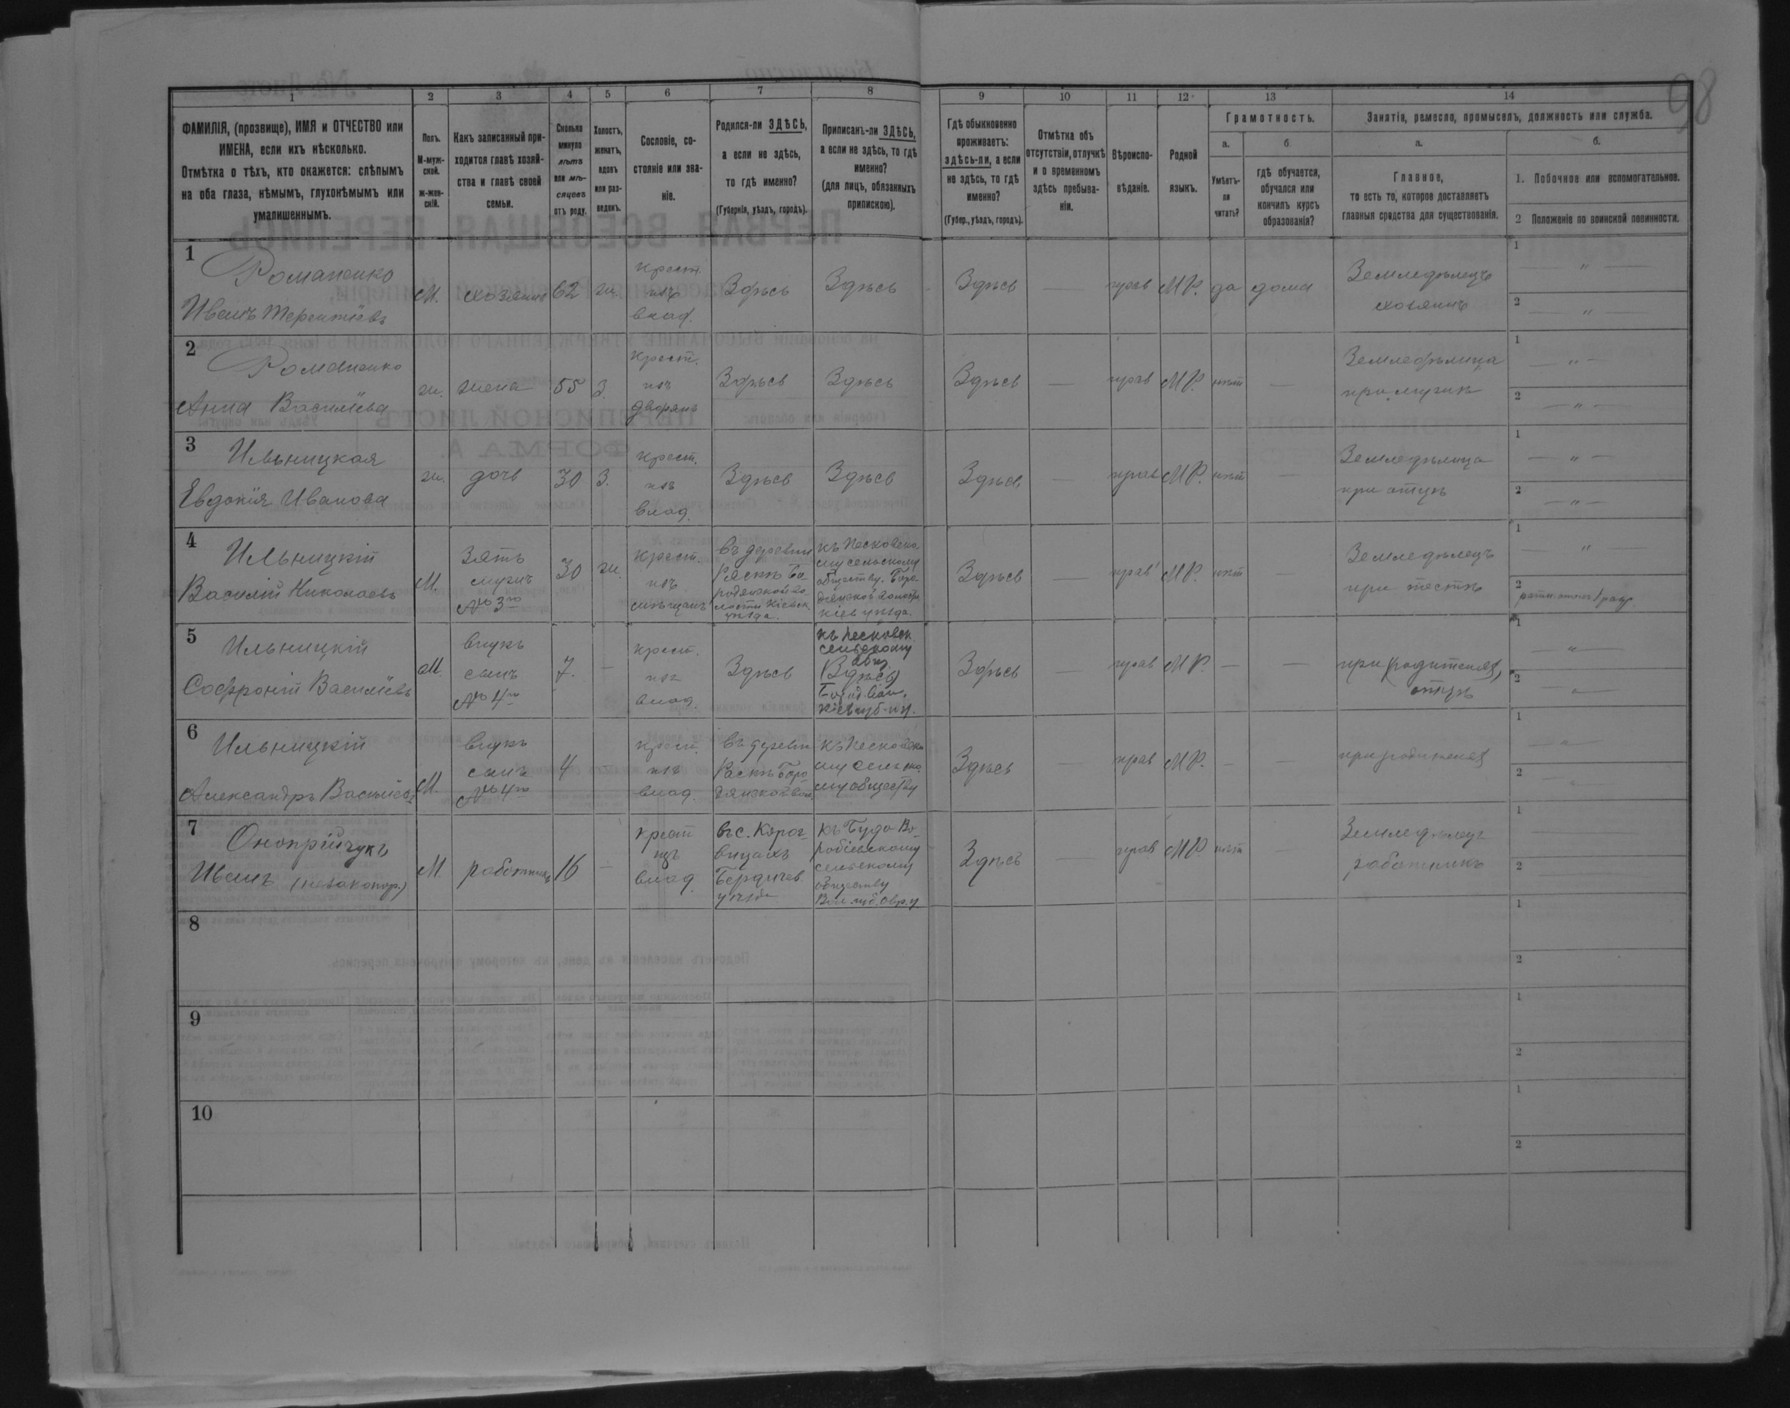 98
1 2 3 4 5 6 7 8 9 10 11 12 13 14
ФАМИЛІЯ, (прозвище), ИМЯ и ОТЧЕСТВО или
ИМЕНА, если ихъ нѣсколько.
Отмѣтка о тѣхъ, кто окажется: слѣпымъ
на оба глаза, нѣмымъ, глухонѣмымъ или
умалишеннымъ.
Полъ.
М-муж-
ской.
ж-жен-
скій.
Какъ записанный при-
ходится главѣ хозяй-
ства и главѣ своей
семьи.
Сколько
минуло
лѣтъ
или мѣ-
сяцевъ
отъ роду.
Холостъ,
женатъ,
вдовъ
или раз-
веденъ.
Сословіе, со-
стояніе или зва-
ніе.
Родился-ли ЗДѢСЬ,
а если не здѣсь,
то гдѣ именно?
(Губернія, уѣздъ, городъ).
Приписанъ-ли ЗДѢСЬ,
а если не здѣсь, то гдѣ
именно?
(для лицъ, обязанныхъ
припискою).
Гдѣ обыкновенно
проживаетъ:
здѣсь-ли, а если
не здѣсь, то гдѣ
именно?
(Губер., уѣздъ, городъ).
Отмѣтка объ
отсутствіи, отлучкѣ
и о временномъ
здѣсь пребыва-
ніи.
Вѣроиспо-
вѣданіе.
Родной
языкъ.
Грамотность.
а.
Умѣетъ-
ли
читать?
б
гдѣ обучается,
обучался или
кончилъ курсъ
образованія?
Занятія, ремесло, промыселъ, должность или служба.
а.
Главное,
то есть то, которое доставляетъ
главныя средства для существованія.
б.
1. Побочное или вспомогательное.
2 Положеніе по воинской повинности.
1
Романенко
Иванъ Терентіевъ
М.
хозяинъ
62
ж.
крест.
изъ
влад.
Здѣсь
Здѣсь
Здѣсь
—
прав
МР.
да
дома
Земледѣлецъ
хозяинъ
1
— " —
2
— " —
2
Романенко
Анна Василіева
ж.
жена
55
З.
крест.
изъ
дворянъ
Здѣсь
Здѣсь
Здѣсь
—
прав
МР.
нѣт
—
Земледѣлица
при мужѣ
1
— " —
2
— " —
3
Ильницкая
Евдокія Иванова
ж.
дочь
30
З.
крест.
изъ
влад.
Здѣсь
Здѣсь
Здѣсь
—
прав
МР.
нѣт
—
Земледѣлица
при отцѣ
1
— " —
2
— " —
4
Ильницкій
Василій Николаевъ
М.
Зять
мужъ
№ 3го
30
ж.
крест.
изъ
Въ деревни
къ Песковско
му сельскому
обществу.
Здѣсь
—
прав
МР.
нѣт
—
Земледѣлецъ
при тестѣ
1
— " —
2
5
Ильницкій
Софроній Василіевъ
М.
внукъ
сынъ
№ 4го
7.
—
крест.
изъ
влад.
Здѣсь
къ Песковск.
сельскому
Здѣсь
—
прав
МР
—
—
при
отцѣ
1
— " —
2
— " —
6
Ильницкій
Александръ Василіевъ
М.
внукъ
сынъ
№ 4го
4
—
крест.
изъ
влад.
Въ деревни
къ Песковско
му сельско
му обществу
Здѣсь
—
прав
МР.
—
—
1
2
7
Онопрійчукъ
Иванъ (незаконор.)
М
работникъ
16
—
крест
изъ
влад.
Въ с.
Бердичев
уѣзда
сельскому
обществу
Здѣсь
—
прав
МР.
нѣт
—
Земледѣлецъ
работникъ
1
2
8
1
2
9
1
2
10
1
2